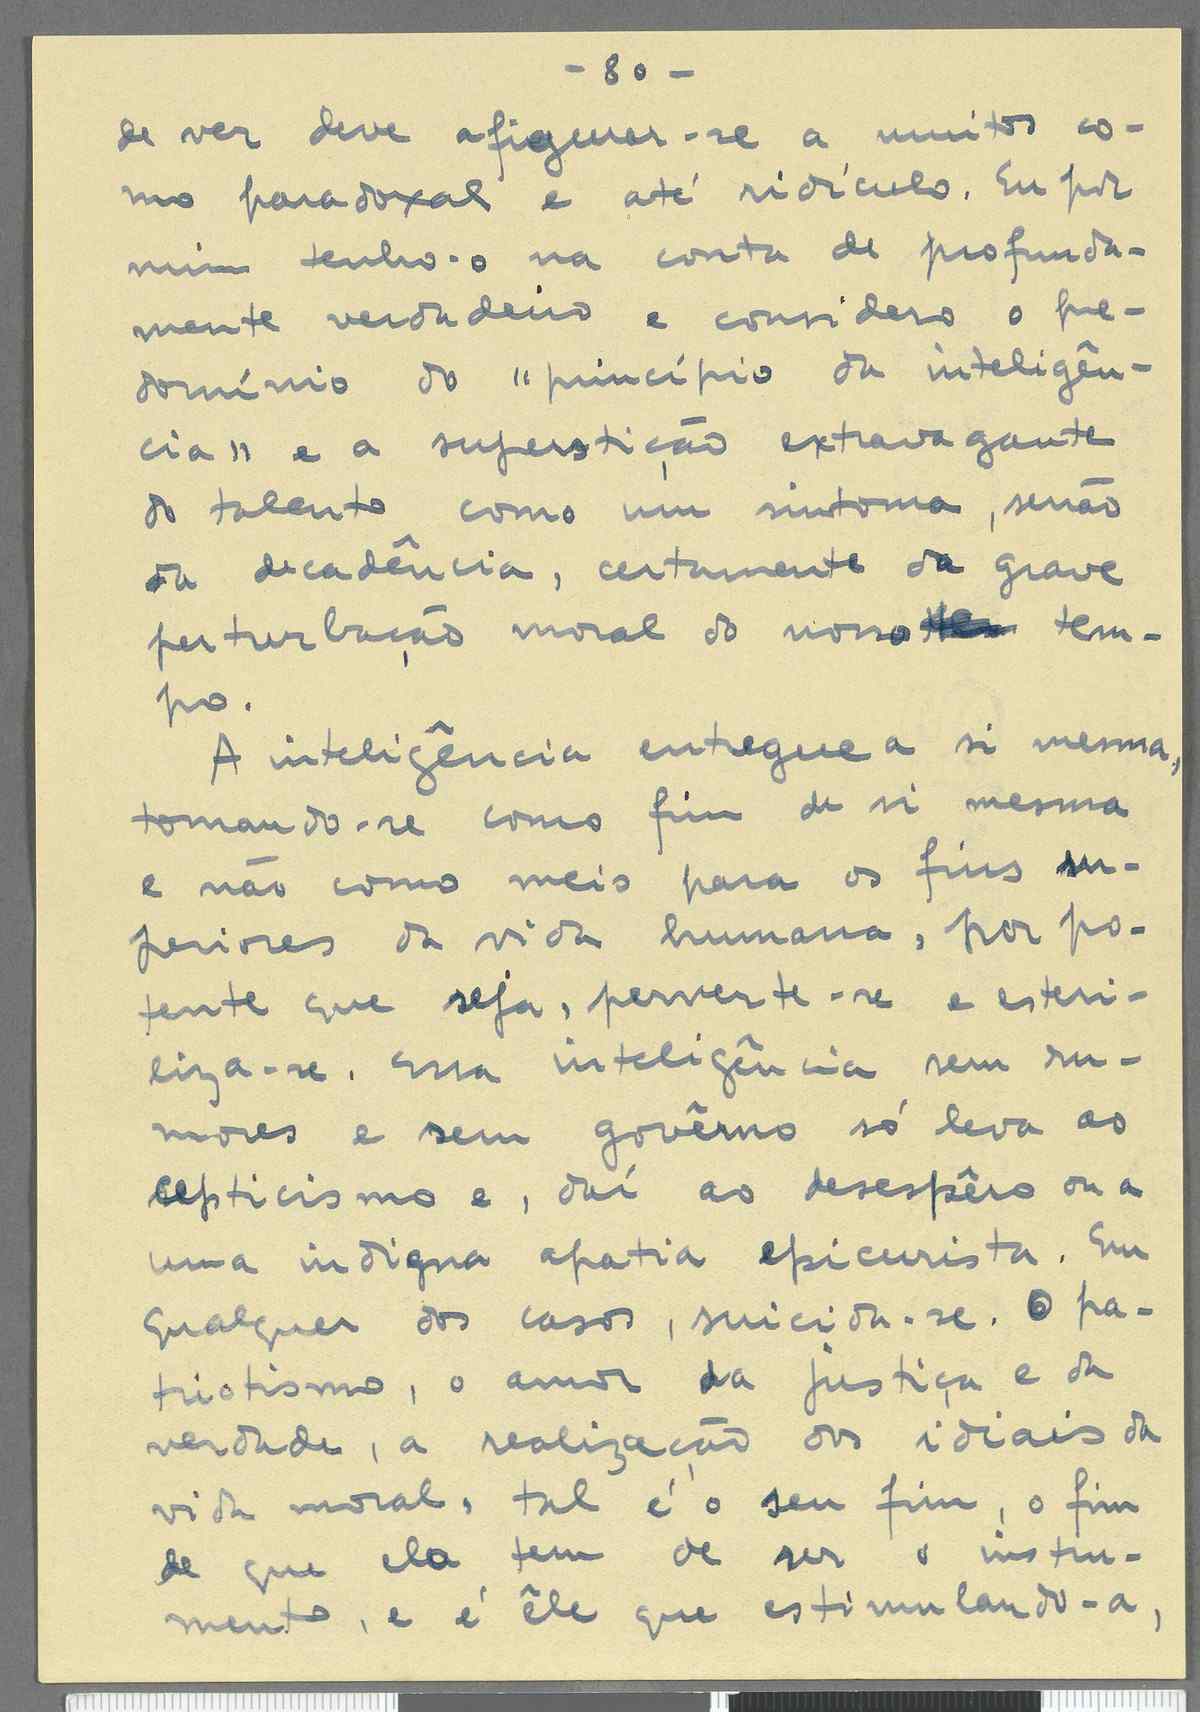 - 80 -
de ver deve afigurar-se a muitos co-
mo paradoxal e até ridículo. Eu por
mim tenho-o na conta de profunda-
mente verdadeiro e considero o pre-
domínio do "princípio da inteligên-
cia" e a superstição extravagante
do talento como um sintoma, senão
da decadência, certamente da grave
perturbação moral do nosso tem-
po.
A inteligência entregue a si mesma,
tomando-se como fim de si mesma
e não como meio para os fins su-
periores da vida humana, por po-
tente que seja, perverte-se e esteri-
liza-se. Essa inteligência sem ru-
mores e sem govêrno só leva ao
cepticismo e, daí ao desespêro ou a
uma indigna apatia epicurista. Em
qualquer dos casos, suicida-se. O pa-
triotismo, o amor da justiça e da
verdade, a realização dos idiais da
vida moral, tal é o seu fim, o fim
de que ela tem de ser o instru-
mento, e é êle que estimulando-a,